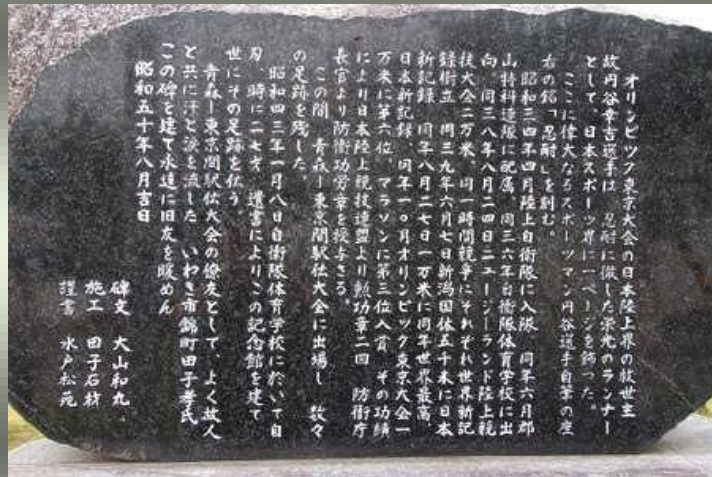 オリンピック東京大会の日本陸上界の救世主
故円谷幸吉選手は、忍耐に徹した栄光のランナー
として、日本スポーツ界に一ページを飾った。
ここに偉大なるスポーツマン円谷選手自筆の座
右の銘「忍耐」を刻む。
昭和三四年四月陸上自衛隊に入隊 同年六月郡
山特科連隊に配属、同三六年自衛隊体育学校に出
向、同三八年八月二四日ニュージーランド陸上競
技大会二万米、同一時間競争にそれぞれ世界新記
録樹立 同三九年六月七日新潟国体五千米に日本
新記録、同年八月二七日一万米に同年世界最高、
日本新記録、同年一〇月オリンピック東京大会一
万米に第六位、マラソンに第三位入賞、その功績
により日本陸上競技連盟より勲功章二回 防衛庁
長官より防衛功労章を授与さる。
この間、青森ー東京間駅伝大会に出場し 数々
の足跡を残した。
昭和四三年一月八日自衛隊体育学校に於いて自
刃、時に二七才 遺書によりこの記念館を建て
世にその足跡を伝う。
青森ー東京間駅伝大会の僚友として、よく故人
と共に汗と涙を流した いわき市錦町田子孝氏
この碑を建て永遠に旧友を暖めん
昭和五十年八月吉日
碑文 大山和丸
施工 田子石材
謹書 水戸松苑